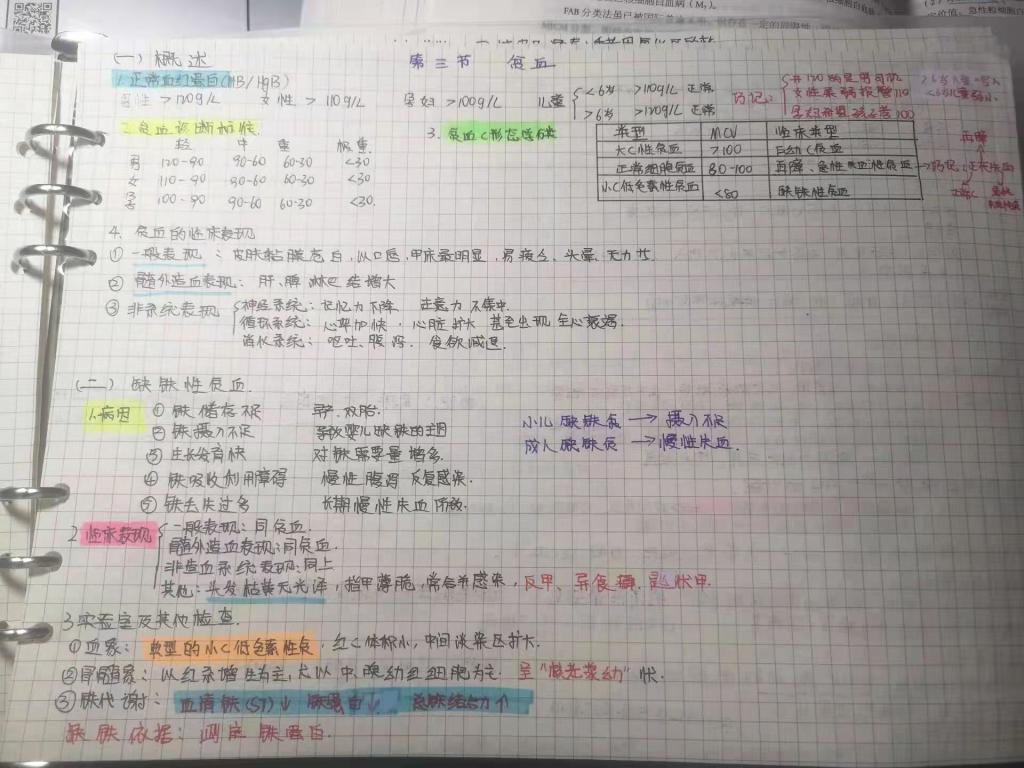 FAB分类法虽已被
第三节 贫血
(一) 概述
1.正常血红蛋白(HB/HgB)
男性>120g/L 女性>110g/L 孕妇>100g/L 儿童 <6岁 >110g/L 正常
>6岁 >120g/L 正常
巧记:
3. 贫血C形态学分类
类型 MCV 临床类型
大C性贫血 >100 巨幼C贫血
正常细胞贫血 80-100 再障、急性失血性贫血
小C低色素性贫血 <80 缺铁性贫血
再障
2.贫血诊断标准.
轻 中 重 极重.
男 120-90 90-60 60-30 <30
女 110-90 90-60 60-30 <30
孕 100-90 90-60 60-30 <30.
4. 贫血的临床表现
① 一般表现: 皮肤粘膜苍白,以口唇,甲床最明显,易疲乏、头晕、无力等.
② 髓外造血表现: 肝、脾 淋巴结增大
③ 非系统表现 神经系统: 记忆力下降 注意力不集中.
循环系统: 心率加快,心脏扩大 甚至出现全心衰竭.
消化系统: 呕吐、腹泻. 食欲减退.
(二) 缺铁性贫血.
1.病因 ① 铁储存不足 早产.双胎.
② 铁摄入不足 导致婴儿缺铁的主因
③ 生长发育快 对铁需要量增多.
④ 铁吸收利用障碍 慢性腹泻 反复感染.
⑤ 铁丢失过多 长期慢性失血所致.
小儿缺铁贫 → 摄入不足
成人缺铁贫 → 慢性失血.
2.临床表现 一般表现: 同贫血.
髓外造血表现: 同贫血.
非造血系统表现: 同上
其他: 头发枯黄无光泽,指甲薄脆,常合并感染,反甲、异食癖、匙状甲.
3.实验室及其他检查.
①血象: 典型的小C低色素性贫,红C体积小,中间淡染区扩大.
②骨髓象: 以红系增生为主,尤以中、晚幼红细胞为主. 呈“核老浆幼”状.
③铁代谢: 血清铁(ST)↓ 铁蛋白↓ 总铁结合力↑
缺铁依据: 测定铁蛋白.